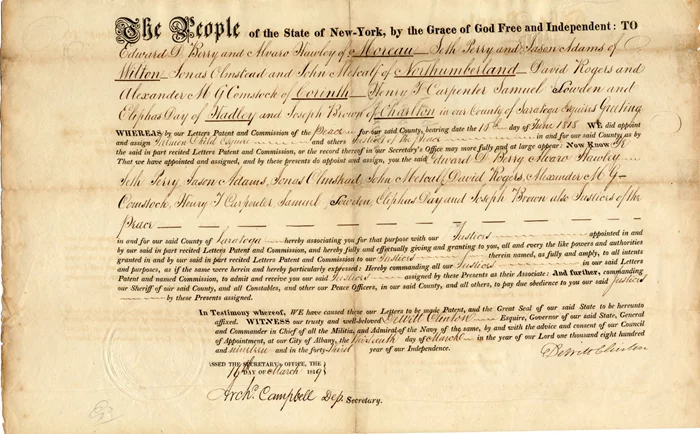 The People of the State of New-York, by the Grace of God Free and Independent: TO
Edward D. Berry and Alvaro Hawley of Moreau Seth Perry and Jason Adams of
Wilton Jonas Olmstead and John Metcalf of Northumberland David Rogers and
Alexander M G Comstock of Corinth Henry T Carpenter Samuel Sowden and
Eliphas Day of Hadley and Joseph Brown of Charlton in our County of Saratoga Esquires Greeting
WHEREAS by our Letters Patent and Commission of the Peace for our said County, bearing date the 10th day of June 1818 WE did appoint
and assign Salmon Child Esquire and others Justices of the Peace in and for our said County, as by
the said in part recited Letters Patent and Commission, or the record thereof in our Secretary's Office may more fully and at large appear: Now Know Ye
That we have appointed and assigned, and by these presents do appoint and assign, you the said Edward D Berry Alvaro Hawley
Seth Perry Jason Adams, Jonas Olmstead, John Metcalf, David Rogers, Alexander M G
Comstock, Henry T Carpenter, Samuel Sowden, Eliphas Day and Joseph Brown also Justices of the
Peace
in and for our said County of Saratoga hereby associating you for that purpose with our Justices appointed in and
by our said in part recited Letters Patent and Commission, and hereby fully and effectually giving and granting to you, all and every the like powers and authorities
granted in and by our said in part recited Letters Patent and Commission to our Justices therein named, as fully and amply, to all intents
and purposes, as if the same were herein and hereby particularly expressed: Hereby commanding all our Justices in our said Letters
Patent and named Commission, to admit and receive you our said Justices assigned by these Presents as their Associate: And further, commanding
our Sheriff of our said County, and all Constables, and other our Peace Officers, in our said County, and all others, to pay due obedience to you our said Justices
by these Presents assigned.
In Testimony whereof, WE have caused these our Letters to be made Patent, and the Great Seal of our said State to be hereunto
affixed. WITNESS our trusty and well-beloved Dewitt Clinton Esquire, Governor of our said State, General
and Commander in Chief of all the Militia, and Admiral of the Navy of the same, by and with the advice and consent of our Council
of Appointment, at our City of Albany, the thirteenth day of March in the year of our Lord one thousand eight hundred
and nineteen and in the forty third year of our Independence.
Dewitt Clinton
SSED THE SECRETARY'S OFFICE, THE
DAY OF March 1819
Archd. Campbell Dep. Secretary.